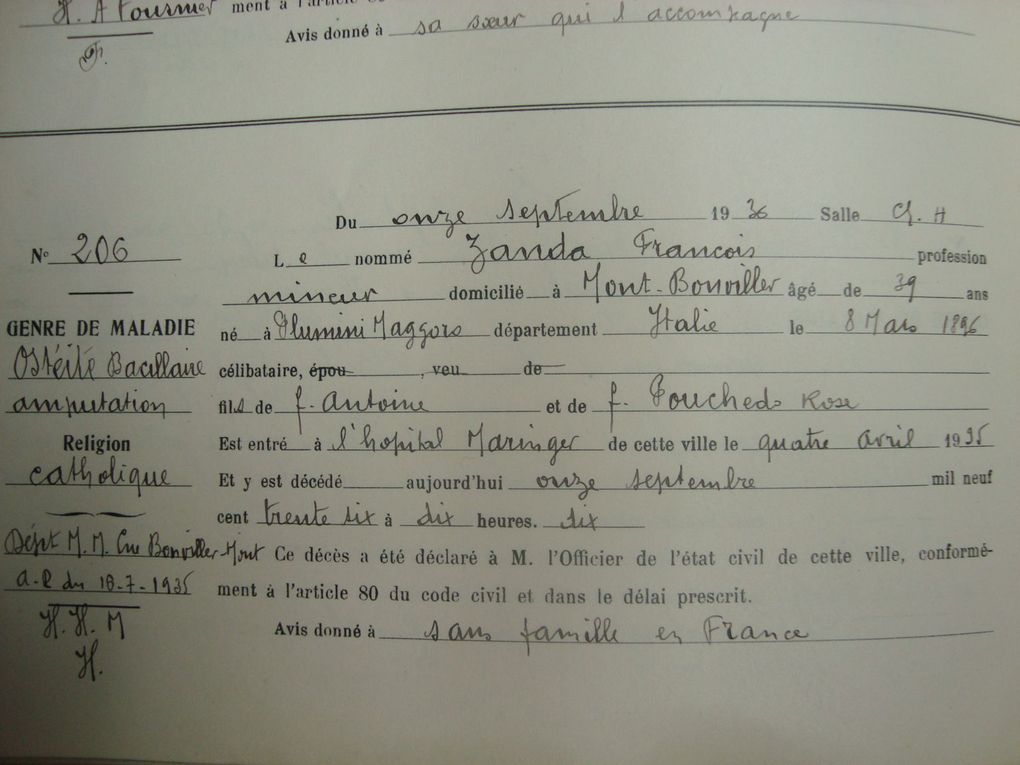 H. A Fournier
ment à l'article 80
Avis donné à sa sœur qui l'accompagne
Du onze septembre 1936 Salle Ch. H
N° 206
Le nommé Zanda Francois profession
mineur domicilié à Mont-Bonviller âgé de 39 ans
GENRE DE MALADIE
né à Flumini Maggoro département Italie le 8 Mars 1896
Ostéite Bacillaire
célibataire, épou , veu de
amputation
fils de f. Antoine et de f. Poucheds Rose
Religion
Est entré à l'hopital Maringer de cette ville le quatre avril 1935
catholique
Et y est décédé aujourd'hui onze septembre mil neuf
cent trente six à dix heures. dix
Dépt M. M. Cne Bonviller-Mont
Ce décès a été déclaré à M. l'Officier de l'état civil de cette ville, conformé-
a.P du 18-7-1935
ment à l'article 80 du code civil et dans le délai prescrit.
H. H. M
Avis donné à sans famille en France
H.